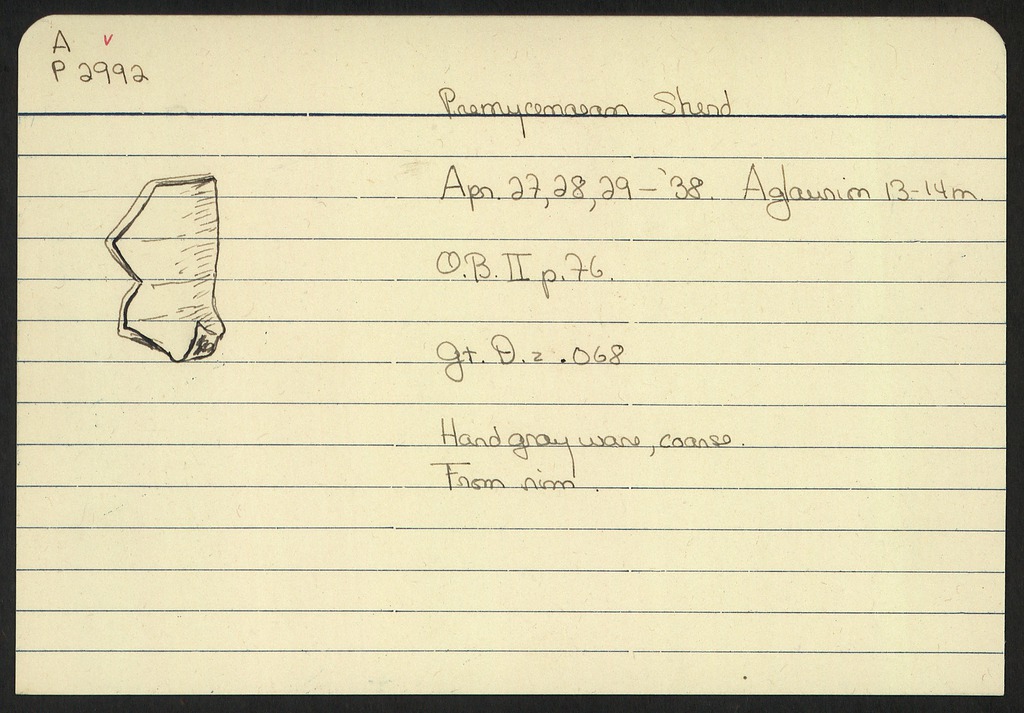 A v
P 2992
Premycenaean Sherd
Apr. 27, 28, 29 - '38. Aglaurion 13-14m.
O.B. II p.76.
Gt. D. = .068
Hard gray ware, coarse.
From rim.